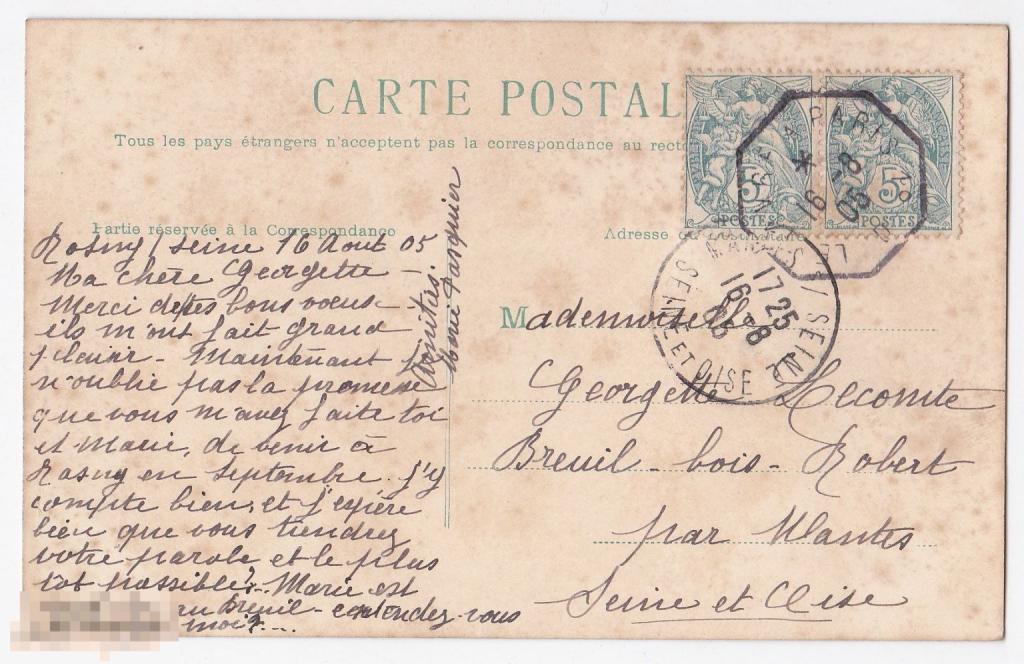 CARTE POSTALE
Tous les pays étrangers n'acceptent pas la correspondance au recto
Partie réservée à la Correspondance
Adresse du
Rosny s/ Seine 16 Aout 05
Ma chère Georgette -
Merci de tes bons voeux
ils m'ont fait grand
plaisir - Maintenant
n'oublie pas la promesse
que vous m'avez faite toi
et Marie, de venir à
Rosny en Septembre j'y
compte bien, et j'espère
bien que vous tiendrez
votre parole et le plus
tôt possible. Marie est
au Breuil - entendez-vous
mois...
Amitiés.
Pasquier
POSTES
5
POSTES
5
A PARIS
16 -8
05
MANTES S/ SEINE
17 25
16 -8
05
SEINE ET OISE
Mademoiselle
Georgette Lecomte
Breuil - bois - Robert
par Mantes
Seine et Oise